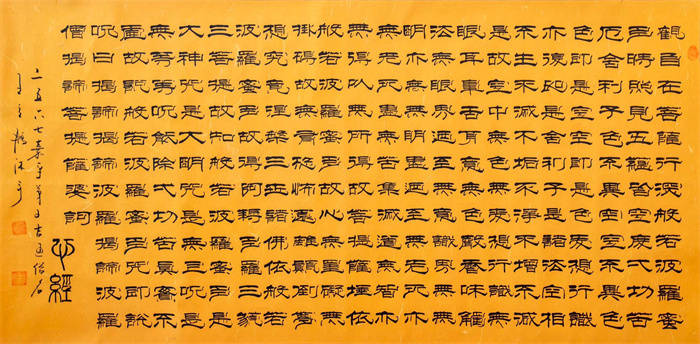 觀自在菩薩行深般若波羅蜜
多時照見五蘊皆空度一切苦
厄舍利子色不異空空不異色
色即是空空即是色受想行識
亦復如是舍利子是諸法空相
不生不滅不垢不淨不增不減
是故空中無色無受想行識無
眼耳鼻舌身意無色聲香味觸
法無眼界乃至無意識界無無
明亦無無明盡乃至無老死亦
無老死盡無苦集滅道無智亦
無得以無所得故菩提薩埵依
般若波羅蜜多故心無掛礙無
掛礙故無有恐怖遠離顛倒夢
想究竟涅槃三世諸佛依般若
波羅蜜多故得阿耨多羅三藐
三菩提故知般若波羅蜜多是
大神咒是大明咒是無上咒是
無等等咒能除一切苦真實不
虛故說般若波羅蜜多咒即說
呪曰揭諦揭諦波羅揭諦波羅
僧揭諦菩提薩婆訶
心經
二五六七